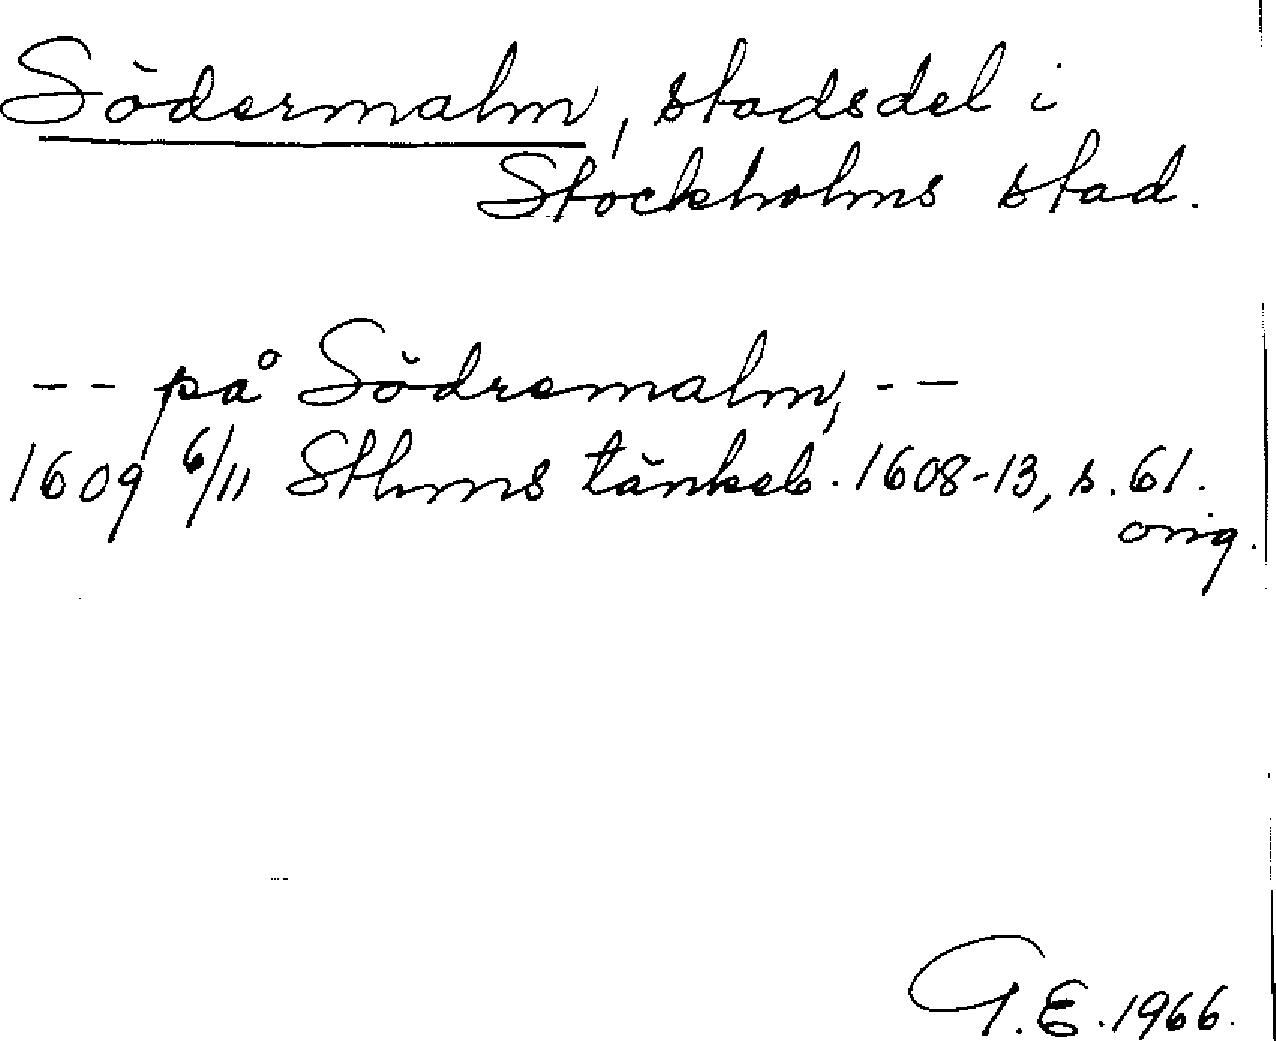 Södermalm, stadsdel i
Stockholms stad.
-- på Södremalm, --
1609 6/11 Sthms tänkeb. 1608-13, s. 61.
orig.
G.E. 1966.